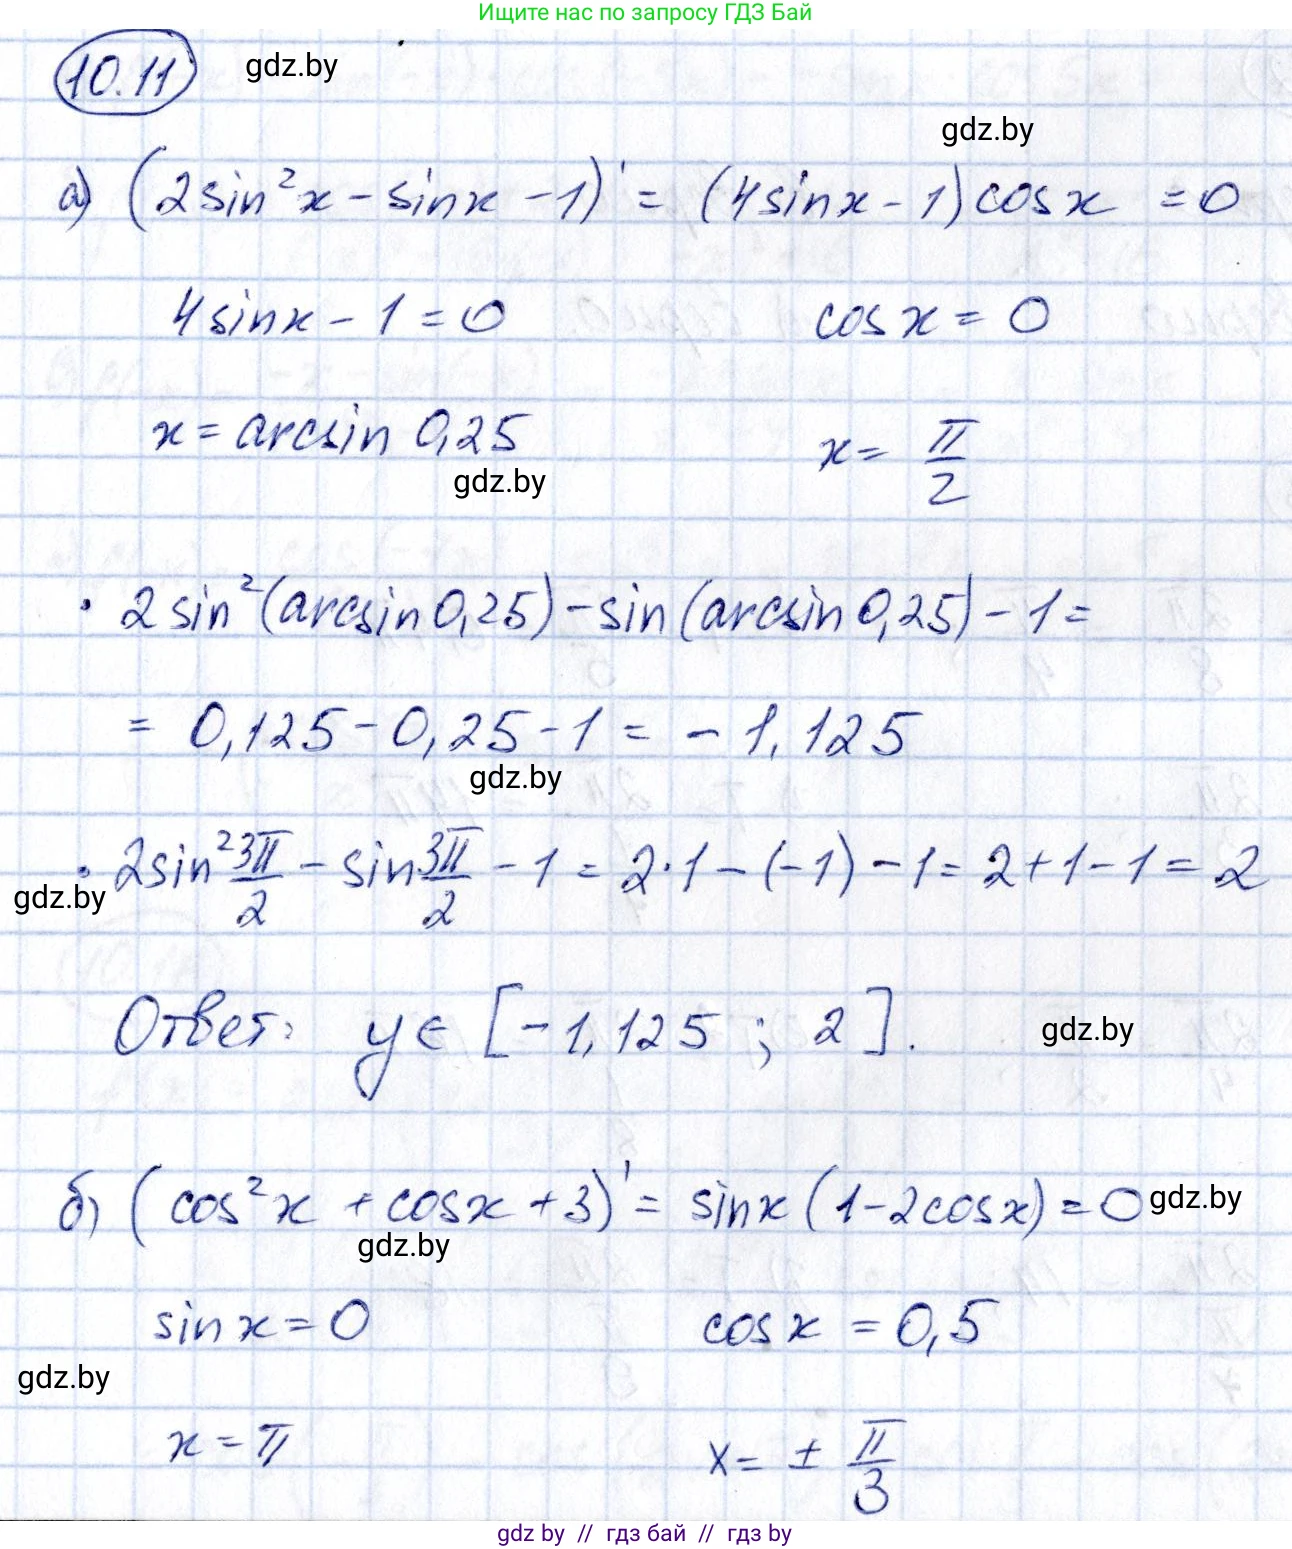 Ищите нас по запросу ГДЗ Бай
10.11 gdz.by
gdz.by
а) (2sin²x - sinx - 1)' = (4sinx - 1)cosx = 0
4sinx - 1 = 0 cosx = 0
x = arcsin 0,25 x = π/2
gdz.by
• 2sin²(arcsin0,25) - sin(arcsin0,25) - 1 =
= 0,125 - 0,25 - 1 = -1,125
gdz.by
• 2sin² 3π/2 - sin 3π/2 - 1 = 2·1 - (-1) - 1 = 2+1-1 = 2
gdz.by
Ответ: y∈[-1,125 ; 2]. gdz.by
б) (cos²x + cosx + 3)' = sinx(1-2cosx) = 0 gdz.by
gdz.by
sinx = 0 cosx = 0,5
gdz.by
x = π x = ± π/3
gdz by // гдз бай // гдз by